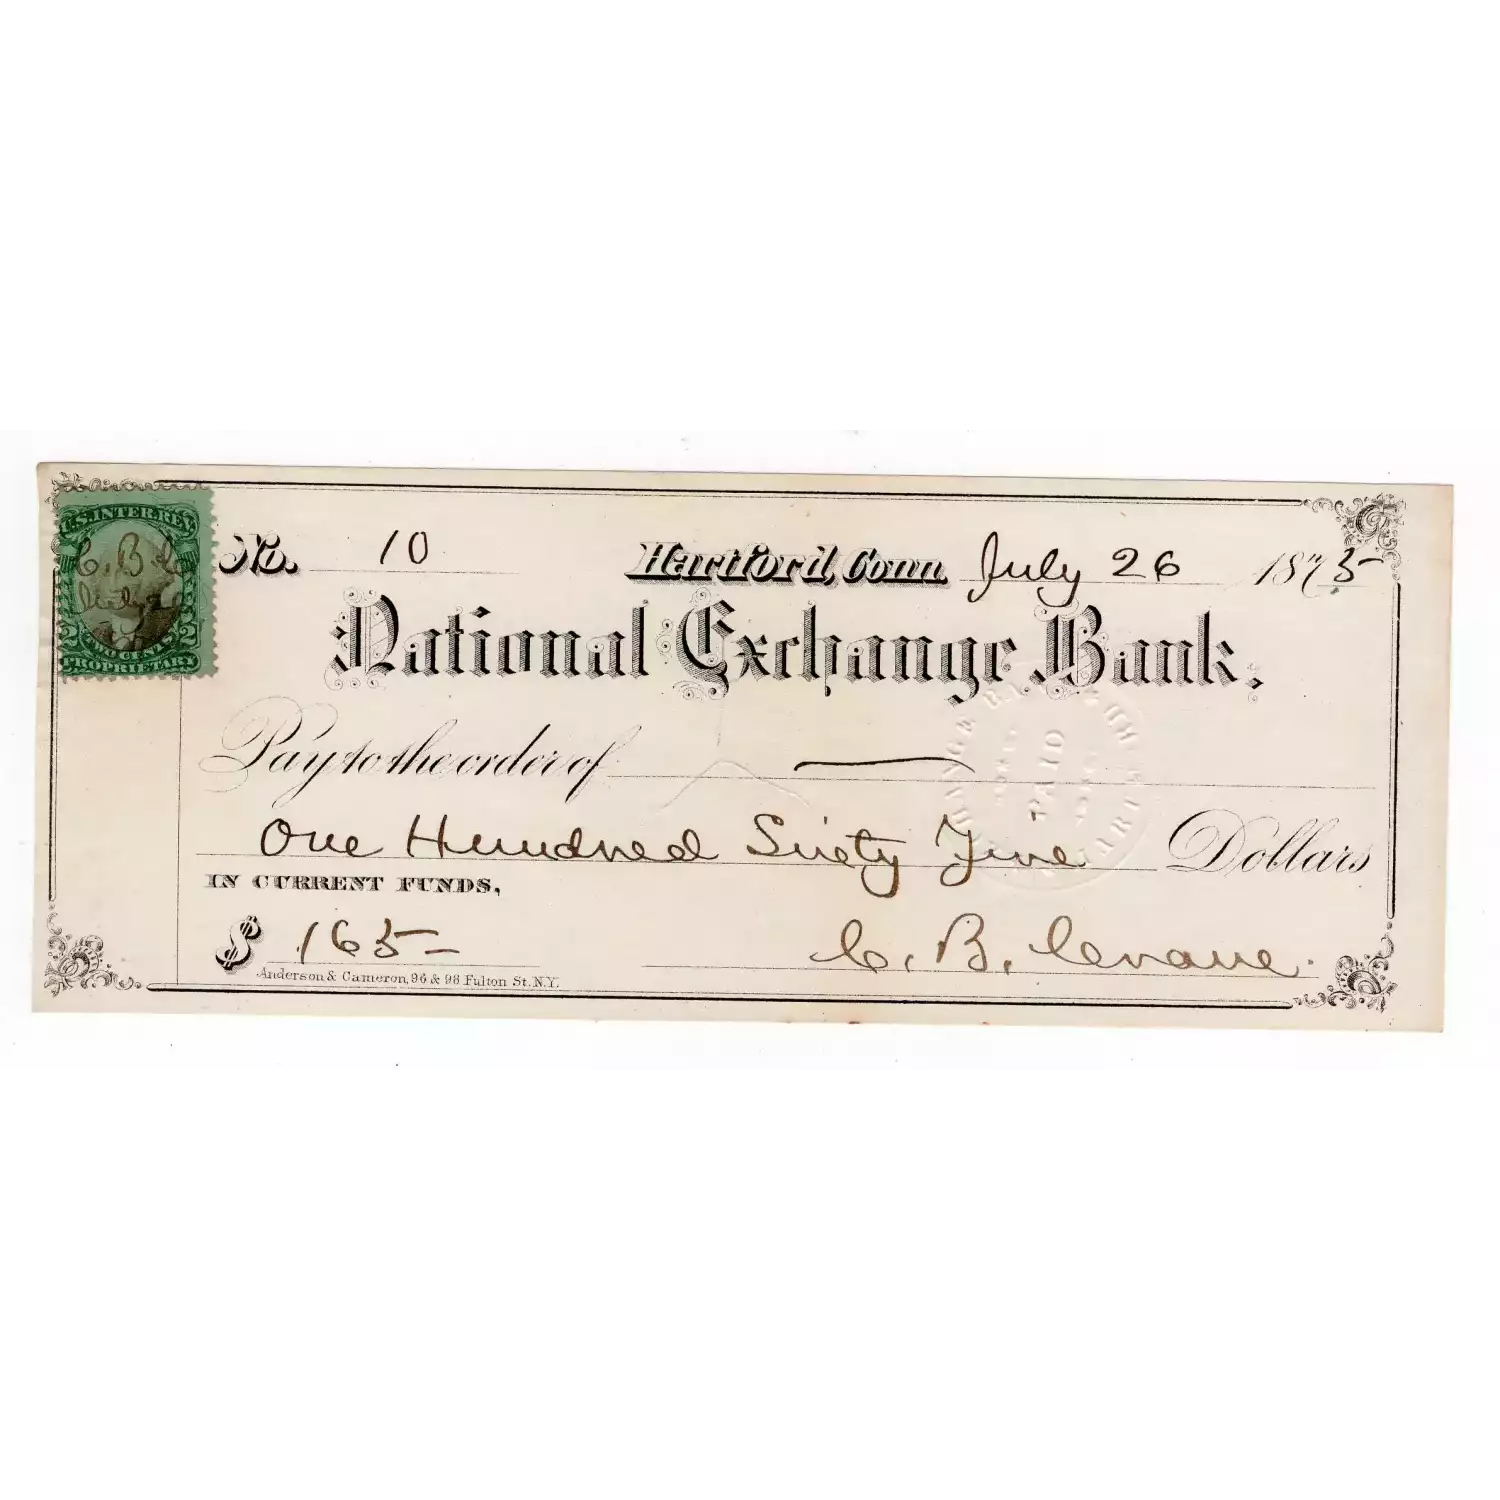 U.S. INTER. REV.
C. B. C
July 26
2 TWO CENTS 2
PROPRIETARY
No. 10 Hartford, Conn. July 26 1875
National Exchange Bank,
Pay to the order of —
One Hundred Sixty Five Dollars
IN CURRENT FUNDS,
$ 165- C. B.
Anderson & Cameron, 96 & 98 Fulton St. N.Y.
PAID